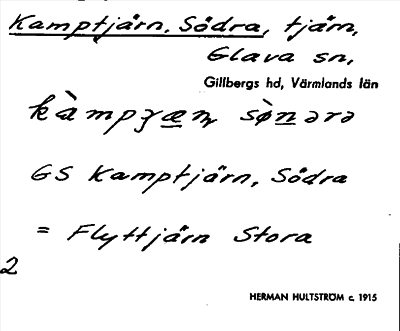 Kamptjärn, Södra, tjärn,
Glava sn,
Gillbergs hd, Värmlands län
kàmpʒæn̥ sø̀nərə
GS Kamptjärn, Södra
= Flyttjärn Stora
2
HERMAN HULTSTRÖM c. 1915